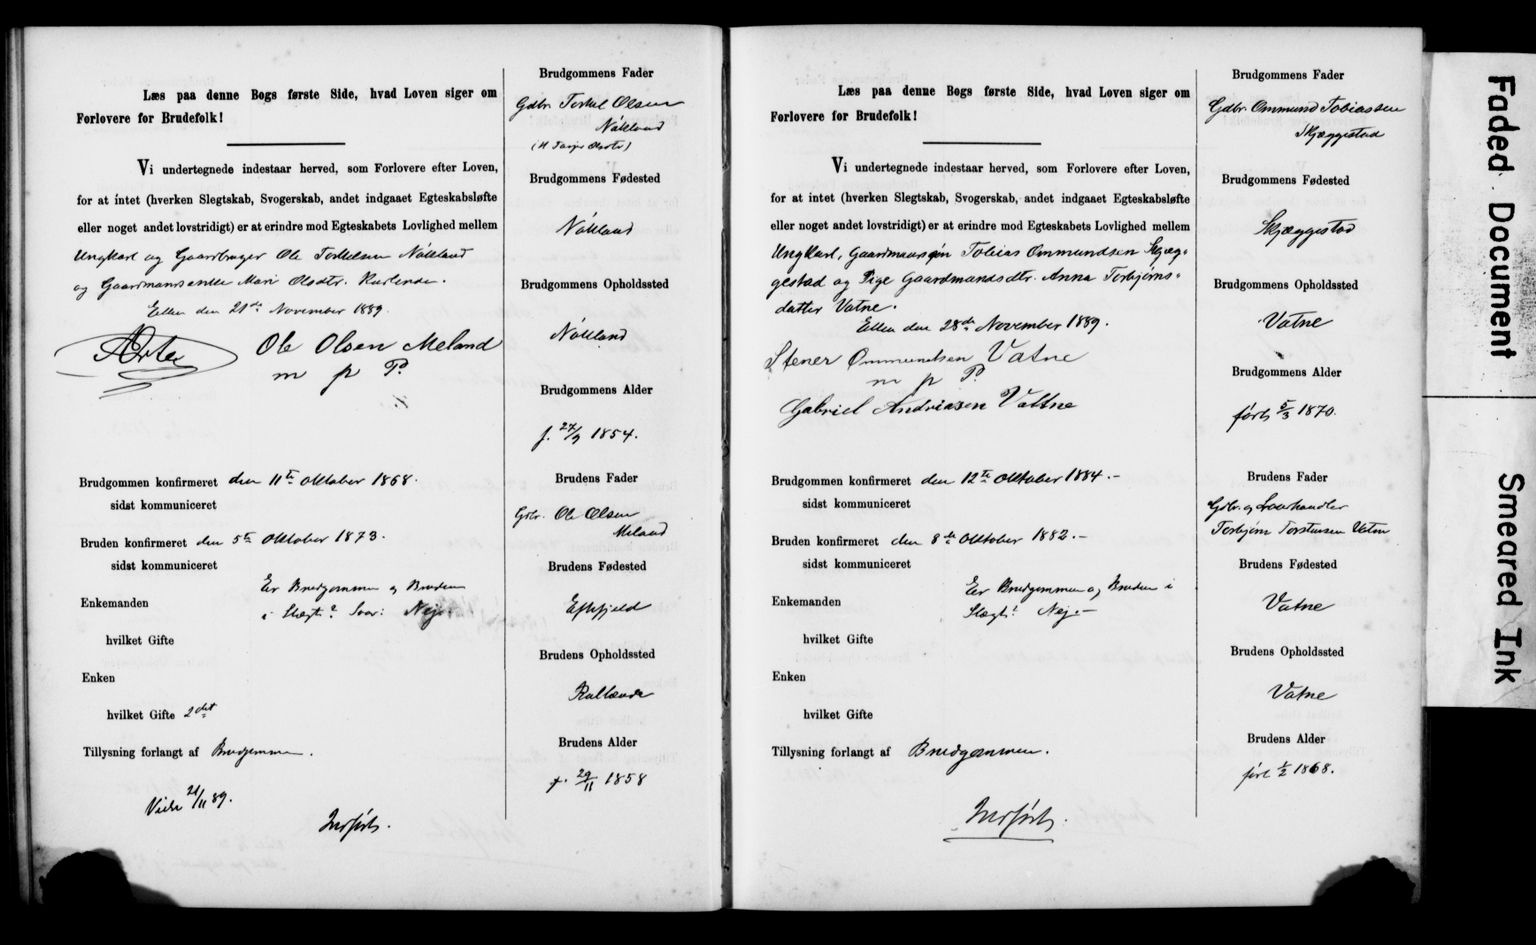 Læs paa denne Bogs første Side, hvad Loven siger om
Forlovere for Brudefolk!
Vi undertegnede indestaar herved, som Forlovere efter Loven,
for at intet (hverken Slegtskab, Svogerskab, andet indgaaet Egteskabsløfte
eller noget andet lovstridigt) er at erindre mod Egteskabets Lovlighed mellem
Ungkarl og Gaardbruger Ole Torkelsen Nökland
og Gaardmandsenke Mari Olsdtr.
den 21de November 1889.
Ole Olsen Meland
m p P.
Brudgommen konfirmeret den 11te Oktober 1868.
sidst kommuniceret
Bruden konfirmeret den 5te Oktober 1873.
sidst kommuniceret
Er Brudgommen og Bruden
i Slægt? Svar: Nej.
Enkemanden
hvilket Gifte
Enken
hvilket Gifte 2det
Tillysning forlangt af Brudgommen.
21/11 89.
Indført.
Brudgommens Fader
Gdbr. Torkel Olsen
Nökland
Brudgommens Fødested
Nökland
Brudgommens Opholdssted
Nökland
Brudgommens Alder
f. 27/9 1854.
Brudens Fader
Gdbr. Ole Olsen
Meland
Brudens Fødested
Brudens Opholdssted
Brudens Alder
f. 29/11 1858
Læs paa denne Bogs første Side, hvad Loven siger om
Forlovere for Brudefolk!
Vi undertegnede indestaar herved, som Forlovere efter Loven,
for at intet (hverken Slegtskab, Svogerskab, andet indgaaet Egteskabsløfte
eller noget andet lovstridigt) er at erindre mod Egteskabets Lovlighed mellem
Ungkarl, Gaardmandssøn Tobias Ommundsen Skjæg-
gestad og Pige Gaardmandsdtr. Anna Torbjørns-
datter Vatne.
den 28de November 1889.
Stener Ommundsen Vatne
m p P.
Gabriel Andriasen Vattne
Brudgommen konfirmeret den 12te Oktober 1884.-
sidst kommuniceret
Bruden konfirmeret den 8de Oktober 1882.-
sidst kommuniceret
Er Brudgommen og Bruden i
Slægt? Nej.-
Enkemanden
hvilket Gifte
Enken
hvilket Gifte
Tillysning forlangt af Brudgommen.
Indført.
Brudgommens Fader
Gdbr. Ommund Tobiassen
Skjæggestad
Brudgommens Fødested
Skjæggestad
Brudgommens Opholdssted
Vatne
Brudgommens Alder
født 5/3 1870.
Brudens Fader
Gdbr. og
Torbjørn Torstensen Vatne
Brudens Fødested
Vatne
Brudens Opholdssted
Vatne
Brudens Alder
født 1/2 1868.
Faded Document
Smeared Ink